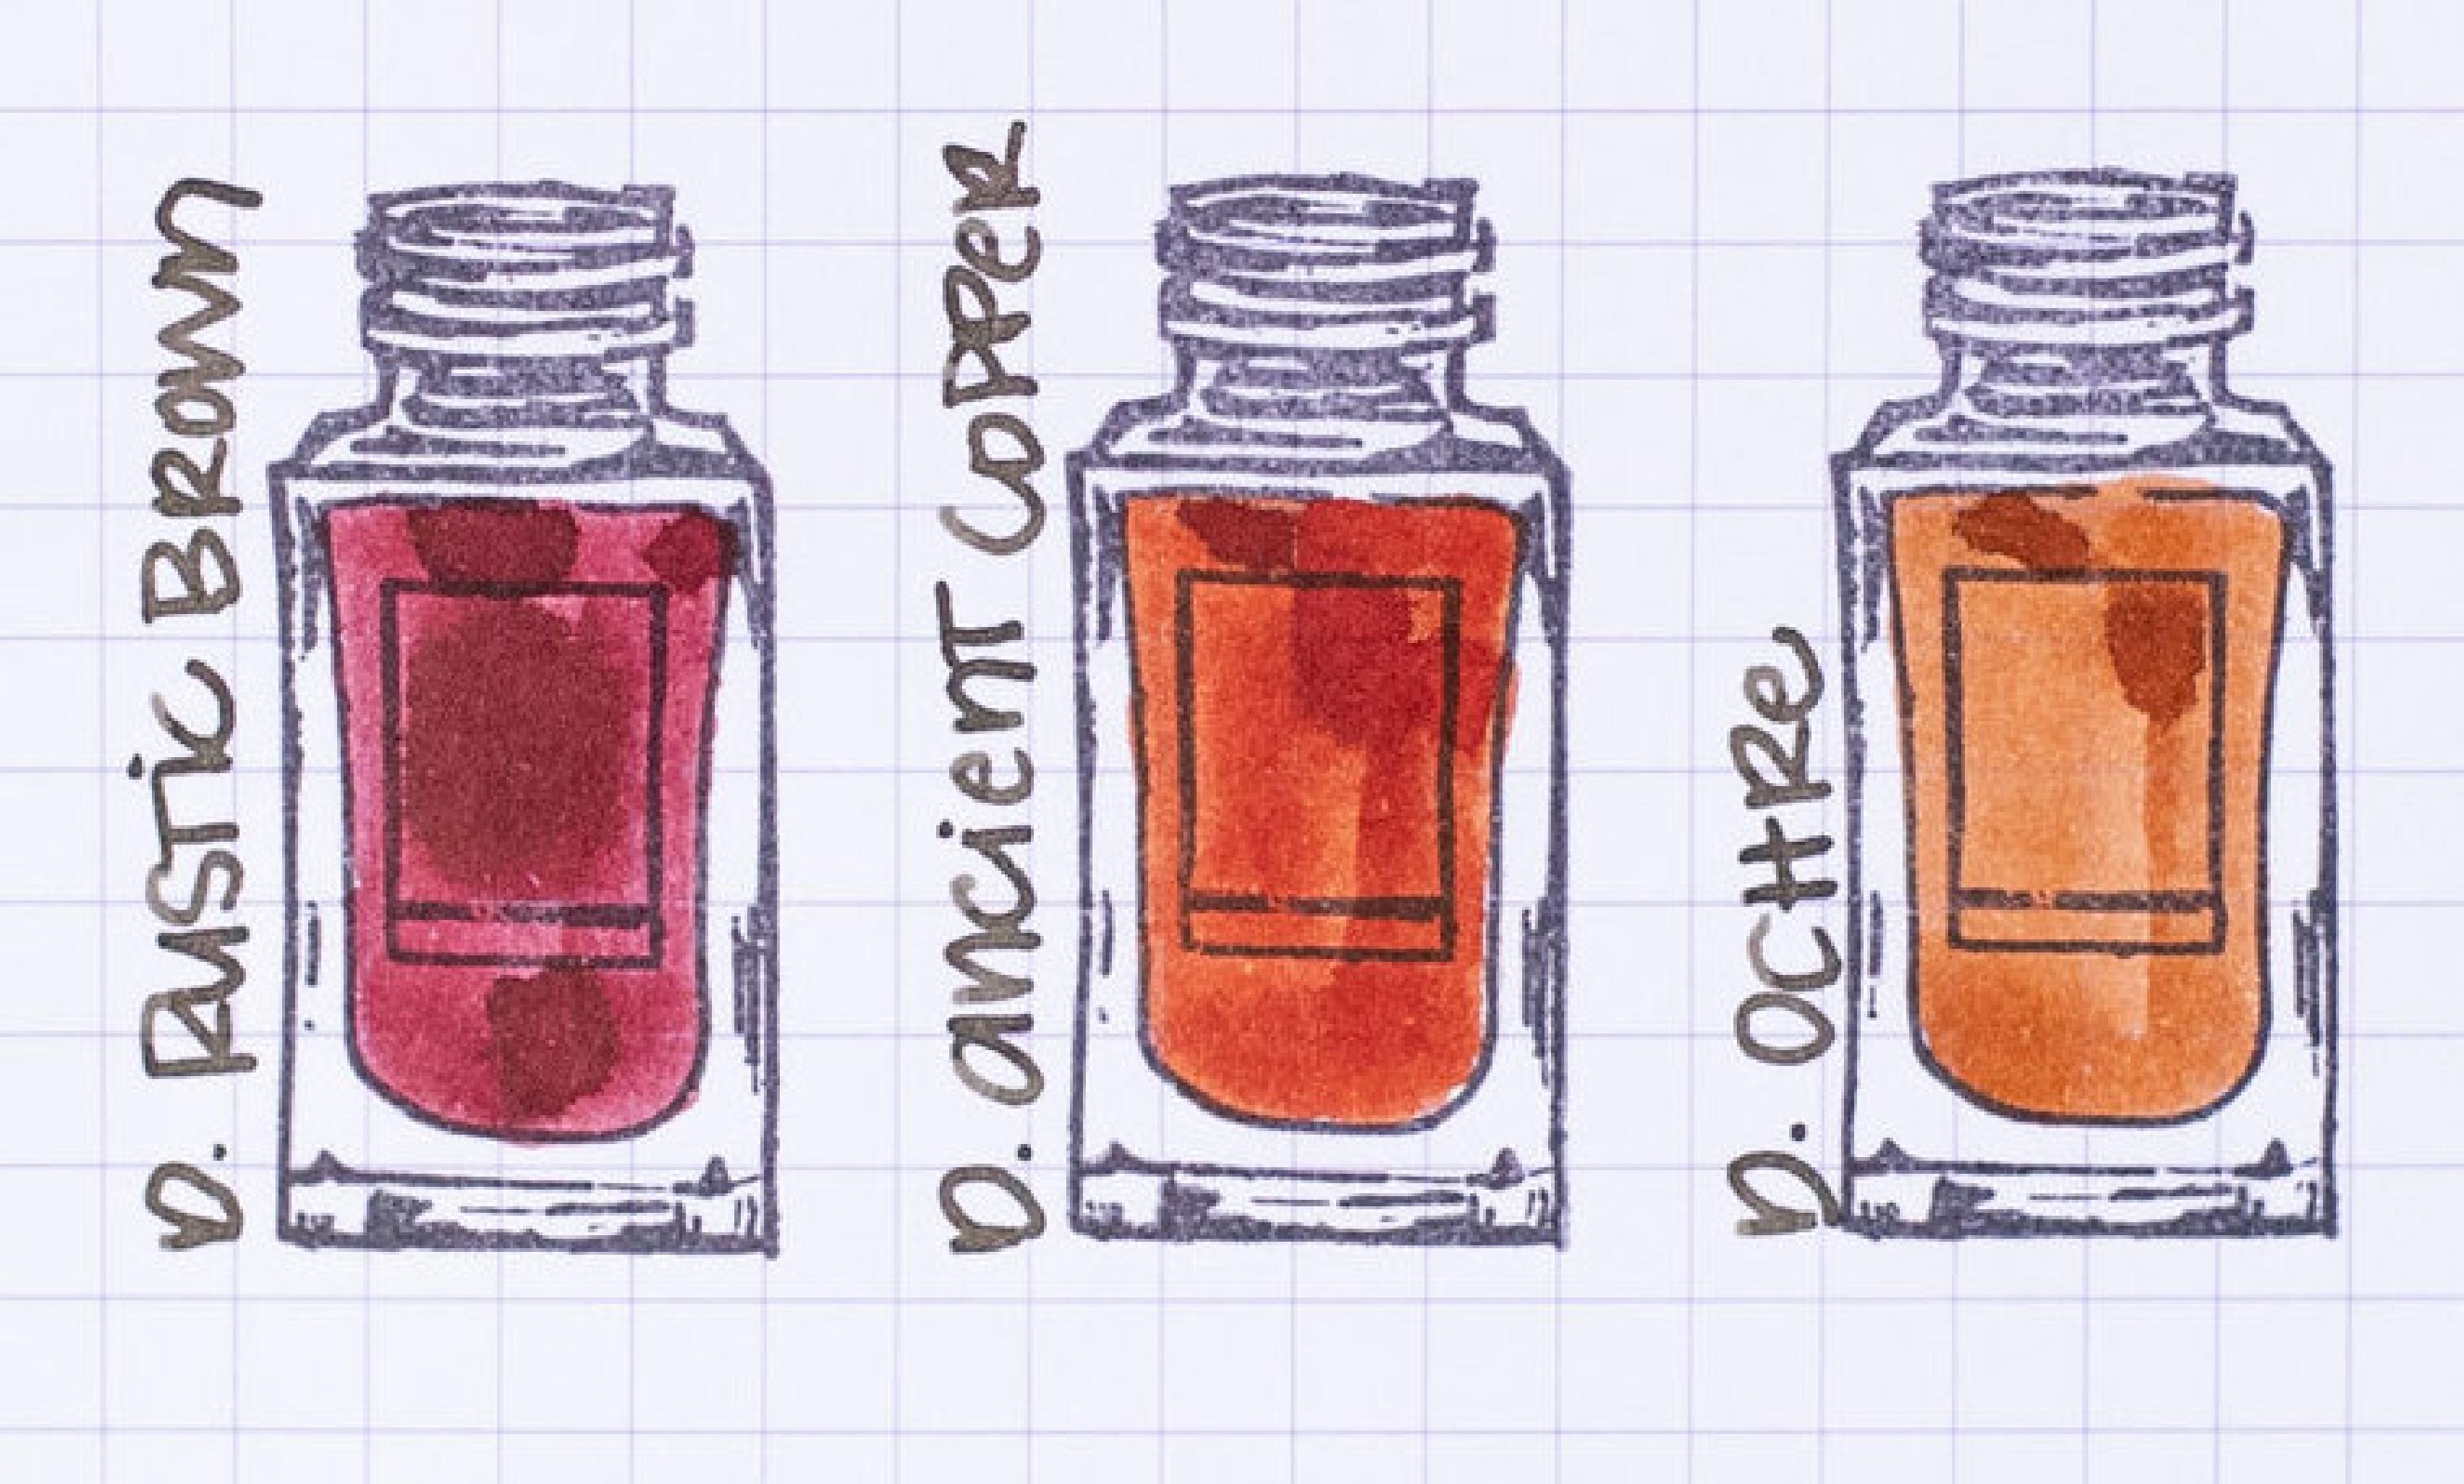 D. RUSTIC BROWN
D. ancient COPPER
D. OCHRe